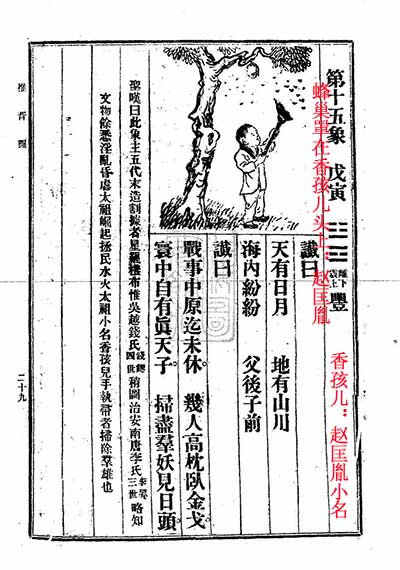 第十五象 戊寅 ䷶ 離下震上 豐
蜂巢單在香孩儿头上：赵匡胤
香孩儿：赵匡胤小名
讖曰
天有日月 地有山川
海內紛紛 父後子前
讖曰
戰事中原迄未休。 幾人高枕臥金戈
寰中自有眞天子。 掃盡羣妖見日頭
聖嘆曰此象主五代末造割據者星羅棊布惟吳越錢氏錢鏐四世稍圖治安南唐李氏李昪三世略知
文物餘悉淫亂昏虐太祖崛起拯民水火太祖小名香孩兒手執帚者掃除羣雄也
推背圖
二十九